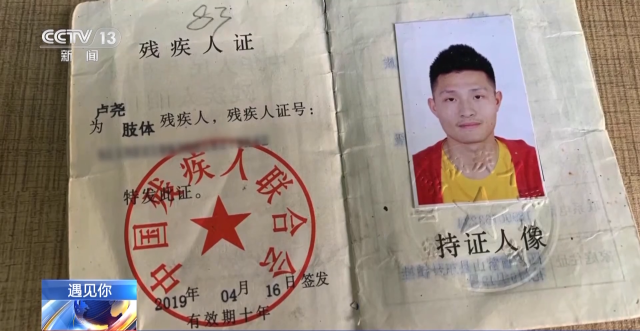 CCTV 13
新闻
83
残疾人证
卢尧
为 肢体 残疾人，残疾人证号：
特发此证。
中国残疾人联合会
2019年 04月 16日签发
有效期十年
持证人像
遇见你